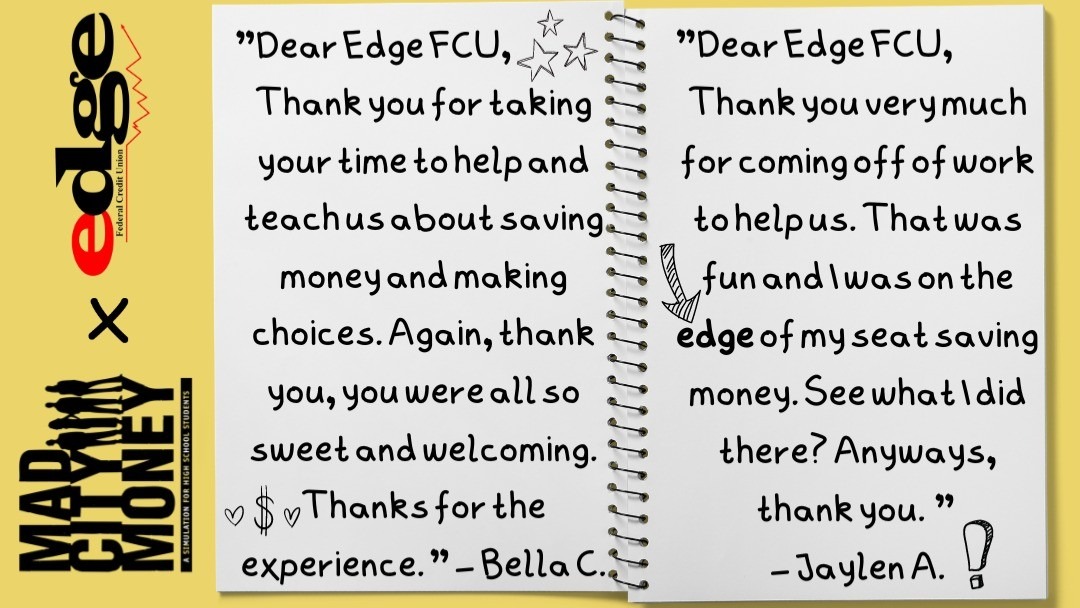 edge
Federal Credit Union
X
MAD
CITY
MONEY
A SIMULATION FOR HIGH SCHOOL STUDENTS
”Dear Edge FCU,
Thank you for taking
your time to help and
teach us about saving
money and making
choices. Again, thank
you, you were all so
sweet and welcoming.
$ Thanks for the
experience.” – Bella C.
”Dear Edge FCU,
Thank you very much
for coming off of work
to help us. That was
fun and I was on the
edge of my seat saving
money. See what I did
there? Anyways,
thank you. ”
– Jaylen A. !